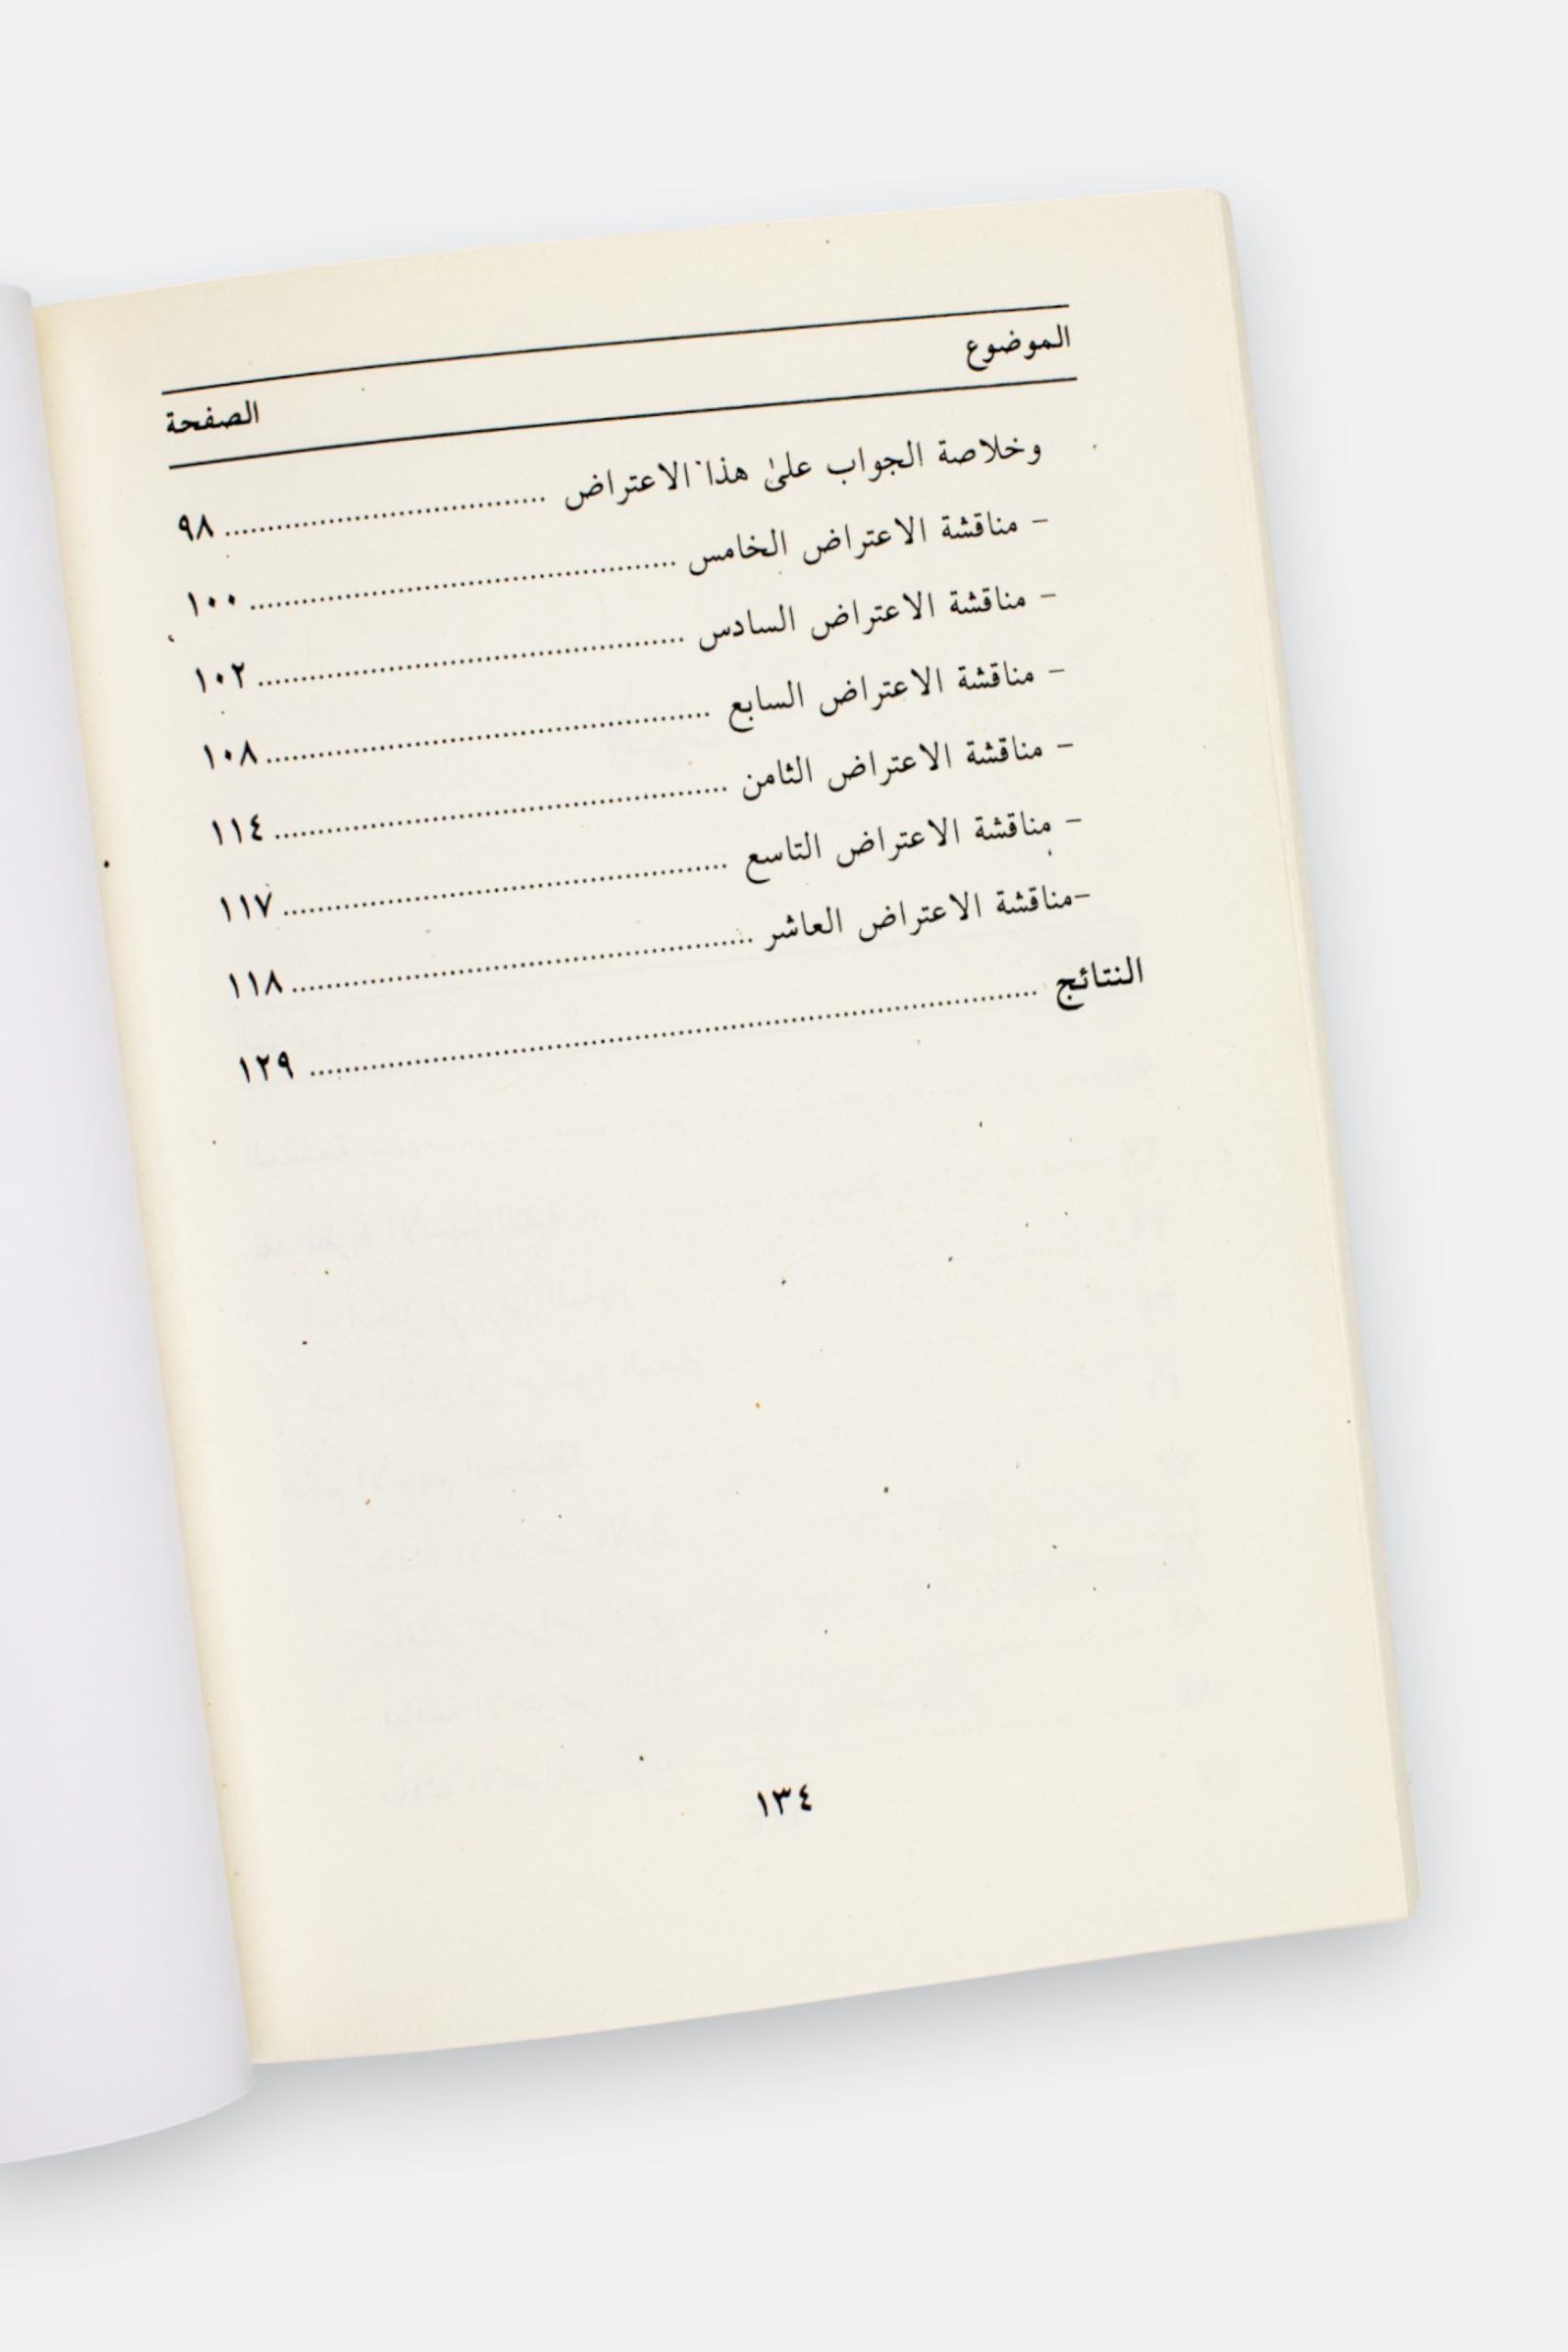 الموضوع الصفحة
وخلاصة الجواب علىٰ هذا الاعتراض ..................................... ٩٨
– مناقشة الاعتراض الخامس .................................................. ١٠٠
– مناقشة الاعتراض السادس .................................................. ١٠٢
– مناقشة الاعتراض السابع .................................................... ١٠٨
– مناقشة الاعتراض الثامن ..................................................... ١١٤
– مناقشة الاعتراض التاسع .................................................... ١١٧
–مناقشة الاعتراض العاشر ...................................................... ١١٨
النتائج ..................................................................................... ١٢٩
١٣٤